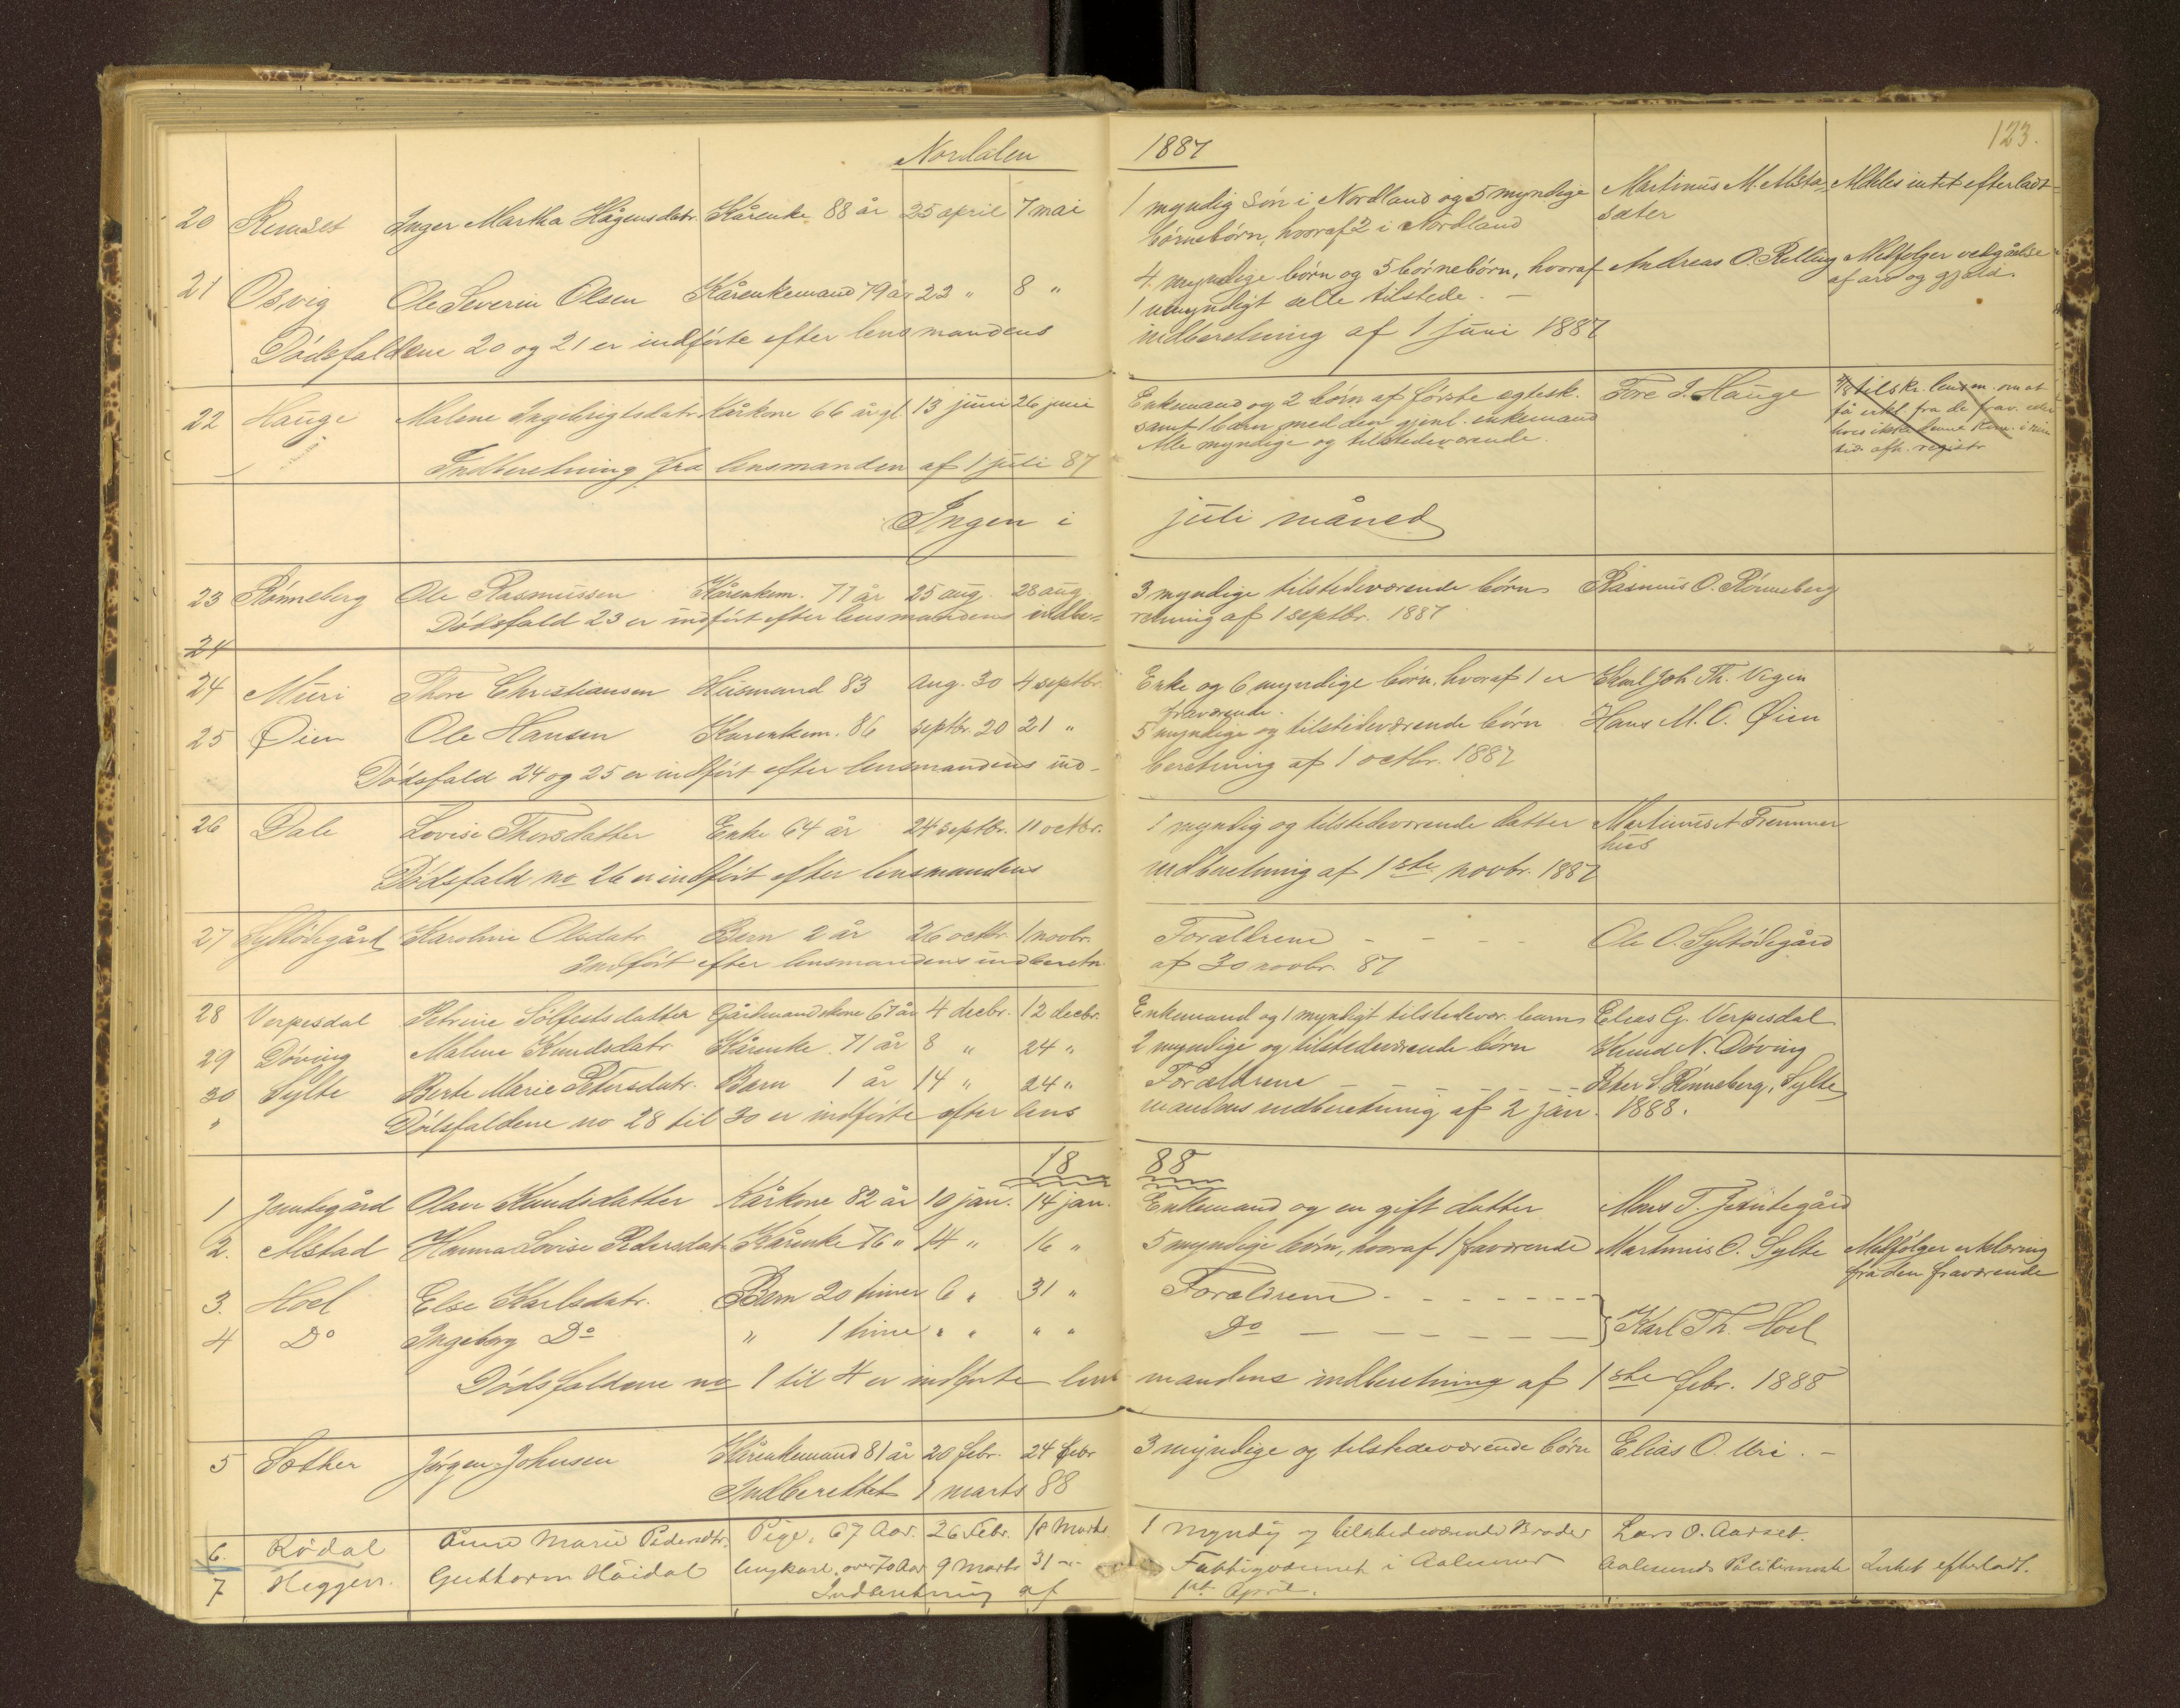 Nordalen 1887 123.
20 Remset Inger Martha Hågensdatr. Kårenke 88 år 25 april 7 mai 1 myndig søn i Nordland og 5 myndige Martinus M. Alsta- Aldeles intet efterladt
børnebørn, hvoraf 2 i Nordland sæter
21 Osvig Ole Severin Olsen Kårenkemand 79 år 22 " 8 " 4 myndige børn og 5 børnebørn, hvoraf Andreas O. Relling Medfølger vedgåelse
1 umyndigt alle tilstede. – af arv og gjæld
Dødsfaldene 20 og 21 er indførte efter lensmandens indberetning af 1 juni 1887
22 Hauge Malene Ingebrigtsdatr. Kårkone 66 år gl. 13 juni 26 juni Enkemand og 2 børn af første egtesk. Tore J. Hauge tilskr. lensm. om at
samt 1 barn med den gjenl. enkemand få erkl. fra de frav.
Alle myndige og tilstedeværende.
Indberetning fra lensmanden af 1 juli 87
Ingen i juli måned
23 Rønneberg Ole Rasmussen Kårenkem. 77 år 25 aug. 28 aug 3 myndige tilstedeværende børn Rasmus O. Rønneberg
Dødsfald 23 er indført efter lensmandens indbe= retning af 1 septbr. 1887
24
24 Muri Thore Christiansen Husmand 83 aug. 30 4 septbr. Enke og 6 myndige børn, hvoraf 1 er Karl Joh. Th. Vigen
fraværende.
25 Øien Ole Hansen Kårenkem. 86 septbr. 20 21 " 5 myndige og tilstedeværende børn Hans M. O. Øien
Dødsfald 24 og 25 er indført efter lensmandens ind- beretning af 1 octbr. 1887
26 Dale Lovise Thorsdatter Enke 64 år 24 septbr. 11 octbr. 1 myndig og tilstedeværende datter Martinus A Fremmer
hus
Dødsfald no 26 er indført efter lensmandens indberetning af 1ste novbr. 1887
27 Syltødegård Karoline Olsdatr. Barn 2 år 26 octbr. 1 novbr. Forældrene - - - - Ole O. Syltødegård
Indført efter lensmandens indberetn. af 30 novbr. 87
28 Verpesdal Petrine Sølfestsdatter Gårdmandskone 67 år 4 decbr. 12 decbr. Enkemand og 1 myndigt tilstedevær. barn Elias G. Verpesdal
29 Døving Malene Knudsdatr. Kårenke 71 år 8 " 24 " 2 myndige og tilstedeværende børn Knud N. Døving
30 Sylte Berte Marie Petersdatr. Barn 1 år 14 " 24 " Forældrene - - - - - - Peter S. Rønneberg, Sylte
" Dødsfaldene no 28 til 30 er indførte efter lens mandens indberetning af 2 jan. 1888.
18 88
1 Jemtegård Olave Knudsdatter Kårkone 82 år 10 jan. 14 jan. Enkemand og en gift datter Mons T. Jemtegård
2. Alstad Hanna Lovise Pedersdatr. Kårenke 76 " 14 " 16 " 5 myndige børn, hvoraf 1 fraværende Martinus O. Sylte Medfølger erklæring
fra den fraværende
3. Hoel Else Karlsdatr. Barn 20 timer 6 " 31 " Forældrene - - - - - -
4 Do Ingeborg Do " 1 time " " " " Do - - - - - - } Karl Th. Hoel
Dødsfaldene no 1 til 4 er indførte lens mandens indberetning af 1ste febr. 1888
5 Sæther Jørgen Johnsen Kårenkemand 81 år 20 febr. 24 febr 3 myndige og tilstedeværende børn Elias O. Uri. –
Indberettet 1 marts 88
6. Rødal Anne Marie Pedersdtr. Pige, 67 Aar. 26 Febr. 18 Marts 1 myndig og tilstedeværende Broder Lars O. Aarset.
7 Heggen. Guttorm Höidal Ungkarl, over 70 Aar 9 Marts 31 -"- Fattigvæsenet i Aalesund Aalesunds Politimester Intet efterladt.
Indberetning af 1ste April.